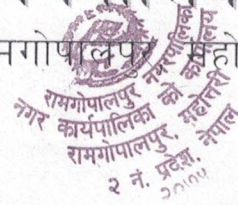 मगोपालपुर महो
रामगोपालपुर नगरपालिका
नगर कार्यपालिका को कार्यालय
रामगोपालपुर, महोत्तरी
२ नं. प्रदेश, नेपाल